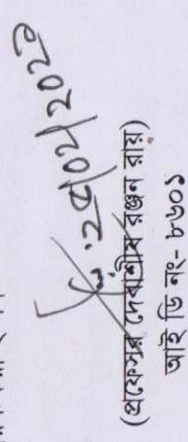 ২৫/০১/২০২৩
(প্রফেসর দেবাশীষ রঞ্জন রায়)
আই ডি নং- ৮৬০১